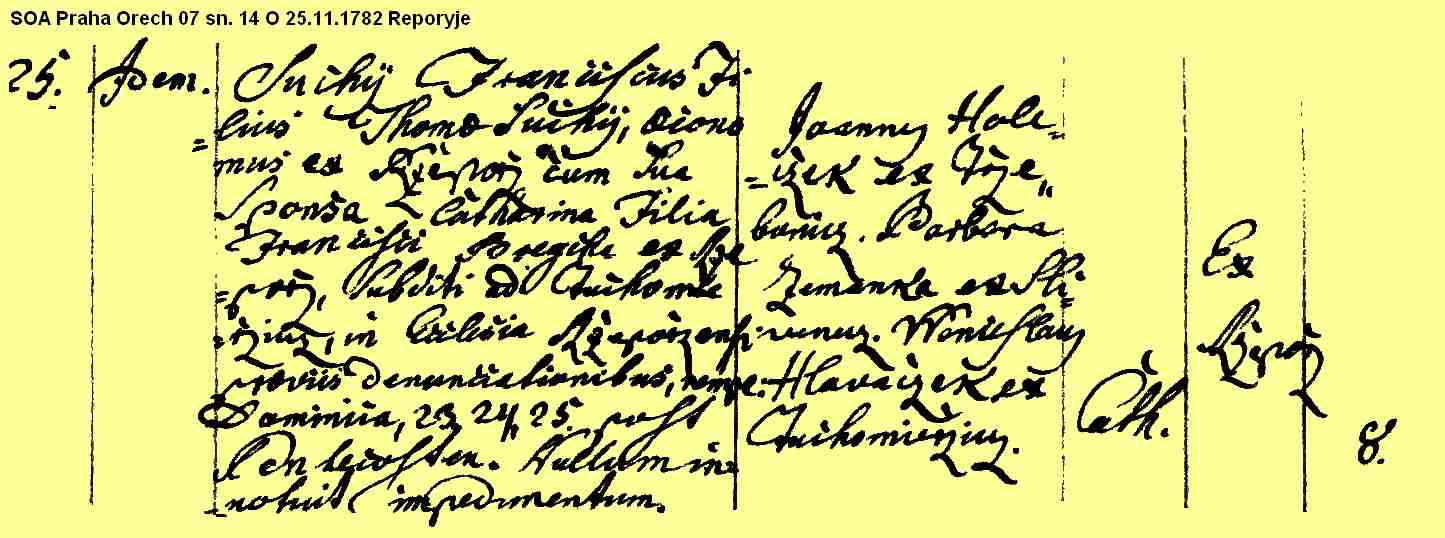 SOA Praha Orech 07 sn. 14 O 25.11.1782 Reporyje
25. Idem. Suchÿ Franciscus Fi
=lius Thomæ Suchÿ, œcono
mus ex Rzeporÿ cum sua
Sponsa Catharina Filia
Francisci ex Rze
=porÿ, subditi ad Tuchomie
=rziuz, in Ecclesia Rzeporzensi
præviis denunciationibus, nempe:
Dominica, 23, 24, 25. post
Pentecosten. Nullum in=
notuit impedimentum.
Joannes Hole=
=czek ex Trze„
boniuz. Barbara
Zemanka ex Sli=
=venuz. Wenceslaus
Hlavaczek ex
Tuchomierziuz.
Cath.
Ex
Rzeporÿ
8.